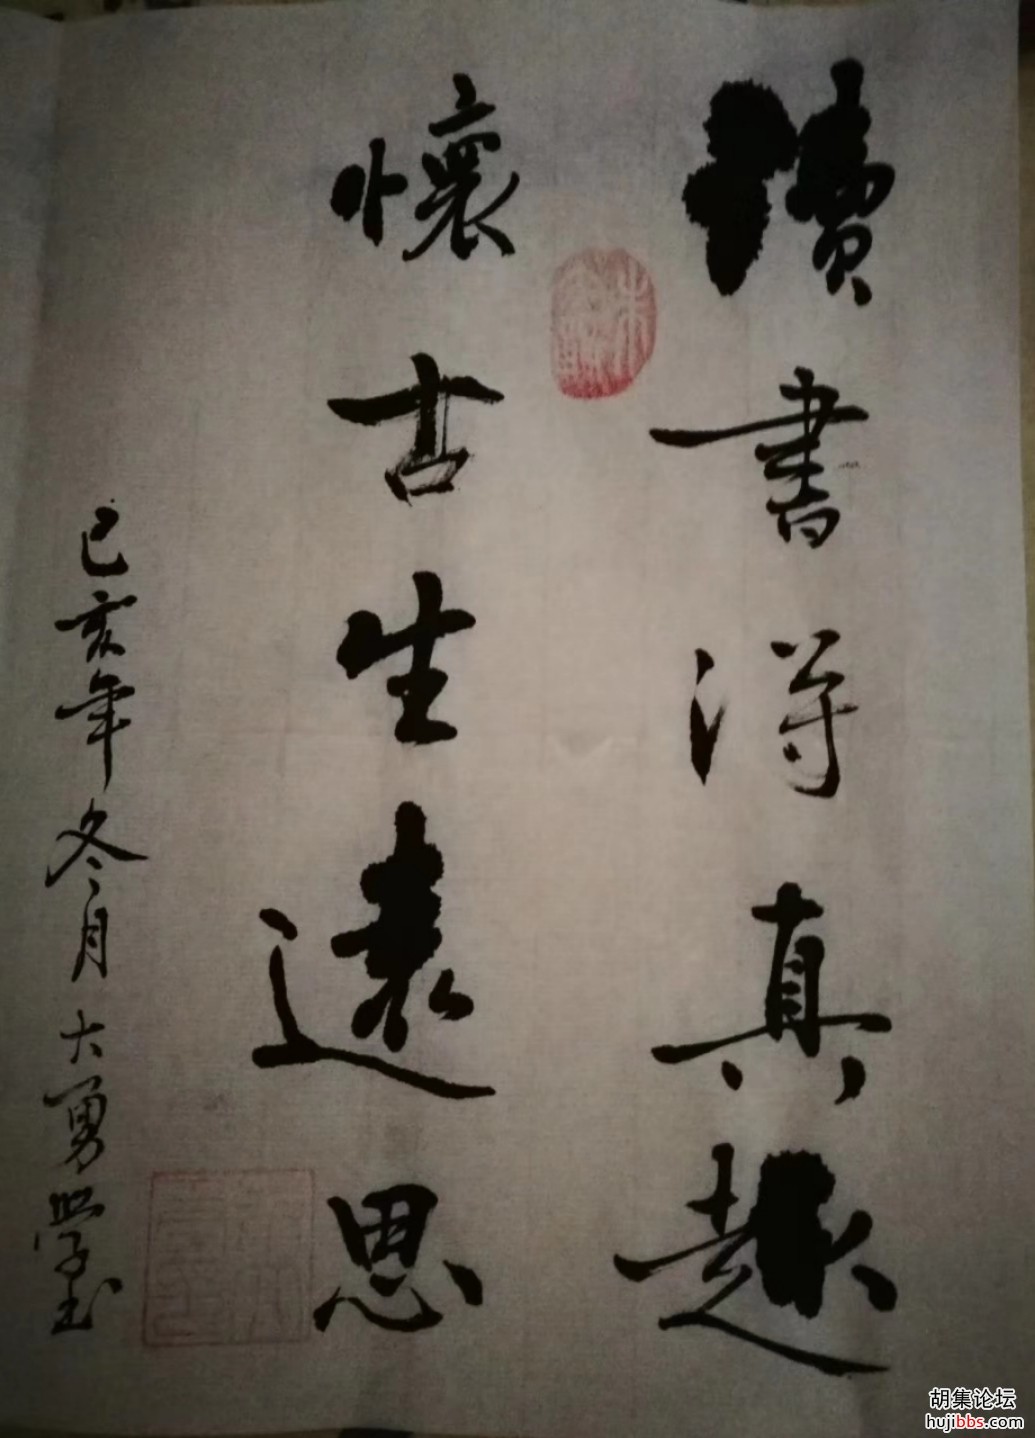 讀書得真趣
懷古生遠思
己亥年冬月大勇學書
胡集论坛
hujibbs.com